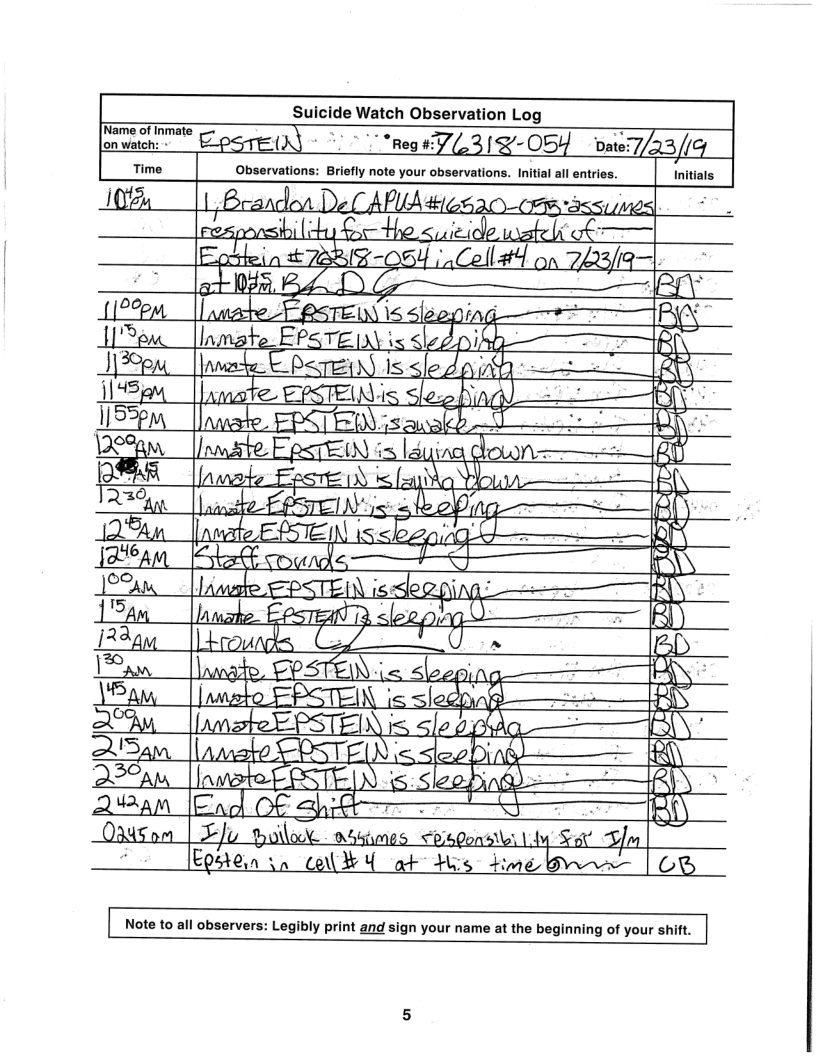 Suicide Watch Observation Log
Name of Inmate on watch: EPSTEIN Reg #: 76318-054 Date: 7/23/19
Time Observations: Briefly note your observations. Initial all entries. Initials
1045PM I, Brandon DeCAPUA #16520-055 assumes
responsibility for the suicide watch of
Epstein #76318-054 in Cell #4 on 7/23/19
at 1045PM. BD
1100PM Inmate EPSTEIN is sleeping BD
1115PM Inmate EPSTEIN is sleeping BD
1130PM Inmate EPSTEIN is sleeping BD
1145PM Inmate EPSTEIN is sleeping BD
1155PM Inmate EPSTEIN is awake BD
1200AM Inmate EPSTEIN is laying down BD
1215AM Inmate EPSTEIN is laying down BD
1230AM Inmate EPSTEIN is sleeping BD
1245AM Inmate EPSTEIN is sleeping BD
1246AM Staff rounds BD
100AM Inmate EPSTEIN is sleeping BD
115AM Inmate EPSTEIN is sleeping BD
122AM Lt rounds BD
130AM Inmate EPSTEIN is sleeping BD
145AM Inmate EPSTEIN is sleeping BD
200AM Inmate EPSTEIN is sleeping BD
215AM Inmate EPSTEIN is sleeping BD
230AM Inmate EPSTEIN is sleeping BD
242AM End Of Shift BD
0245am I/C Bullock assumes responsibility for I/m
Epstein in cell # 4 at this time CB
Note to all observers: Legibly print and sign your name at the beginning of your shift.
5